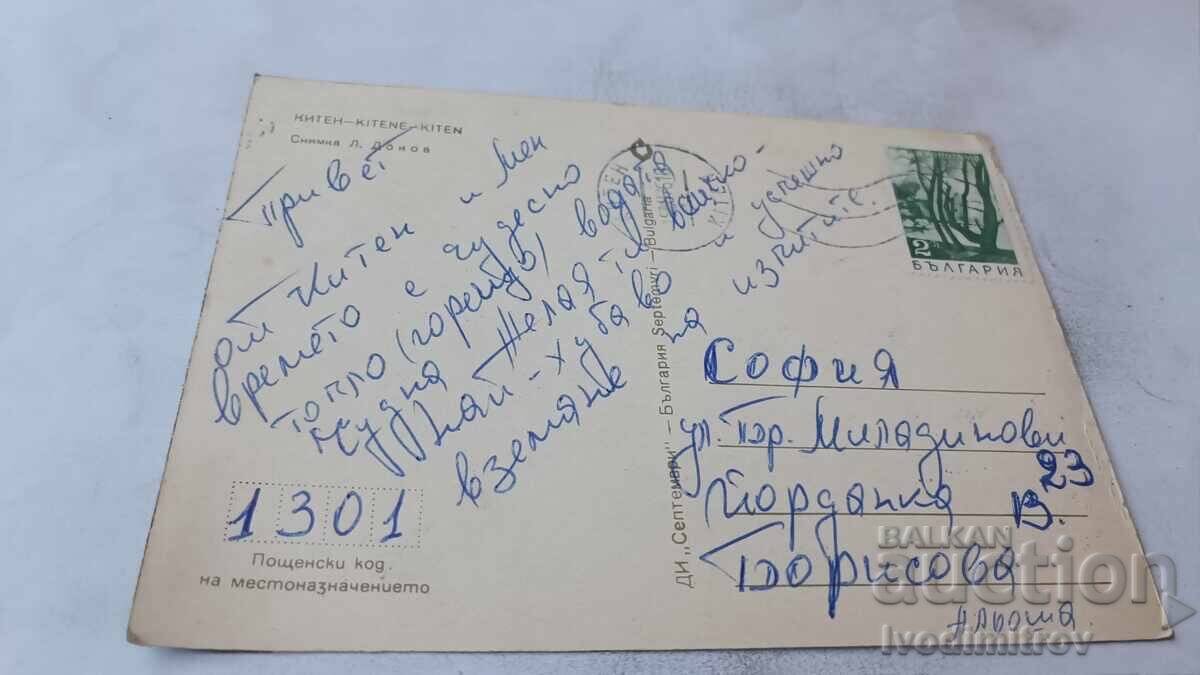 КИТЕН—KITENE—KITEN
Снимка Л. Донов
Привет
от Китен и мен
времето е чудесно
топло (горещо) водата
чудна Желая ти всичко
най-хубаво и успешно
вземане на изпитите.
1301
Пощенски код
на местоназначението
ДИ „Септември" — България Septemvri — Bulgaria
КИТЕН
KITEN
2 ст
БЪЛГАРИЯ
София
ул. Бр. Миладинови
23
Йорданка В.
Борисова
Альоша
BALKAN
auction
Ivodimitrov